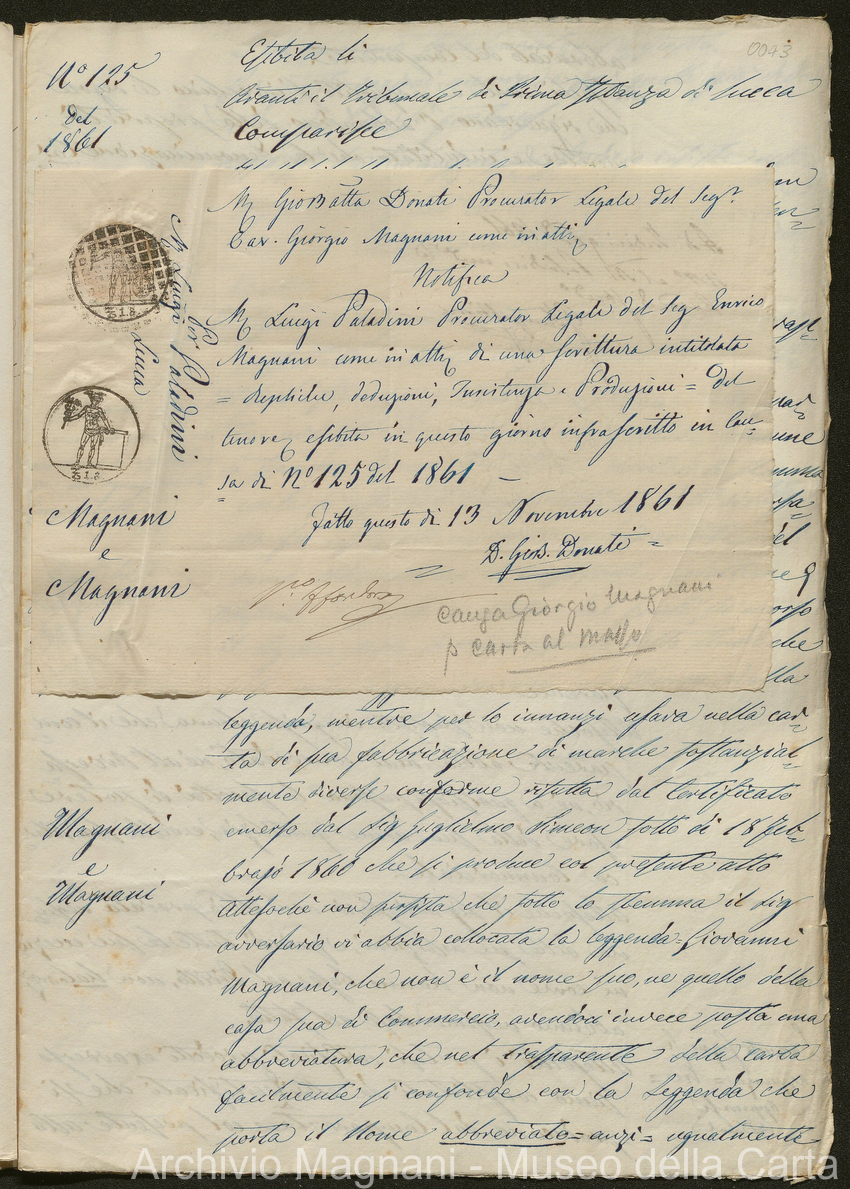 0093
N.º 125
del
1861
Esibita li
Avanti il Tribunale di Prima Istanza di Lucca
Comparisce
M. GioBatta Donati Procurator Legale del Seg.r
Cav. Giorgio Magnani come in atti
Notifica
M. Luigi Paladini Procurator Legale del Seg Enrico
Magnani come in atti di una scrittura intitolata
= Repliche, deduzioni, Insistenza e Produzioni = del
tenore, esibita in questo giorno infrascritto in Cau=
sa di N.º 125 del 1861 —
Fatto questo dì 13 Novembre 1861
D. GioB. Donati =
causa Giorgio Magnani
p carta al
M Luigi Paladini
Per
Lucca
Magnani
e
Magnani
leggenda, mentre per lo innanzi usava nella car=
ta di sua fabbricazione di marche sostanzial=
mente diverse conforme risulta dal Certificato
emesso dal Sig Guglielmo Simeon sotto di 18 Feb=
brajo 1860 che si produce col presente atto
Attesoché non sussista che sotto lo stemma il Sig
avversario vi abbia collocata la leggenda = Giovanni
Magnani, che non è il nome suo, ne quello della
casa sua di Commercio, avendoci invece posta una
abbreviatura, che nel trasparente della carta
facilmente si confonde con la Leggenda che
porta il Nome abbreviato = anzi = ugualmente
Magnani
e
Magnani
Archivio Magnani - Museo della Carta